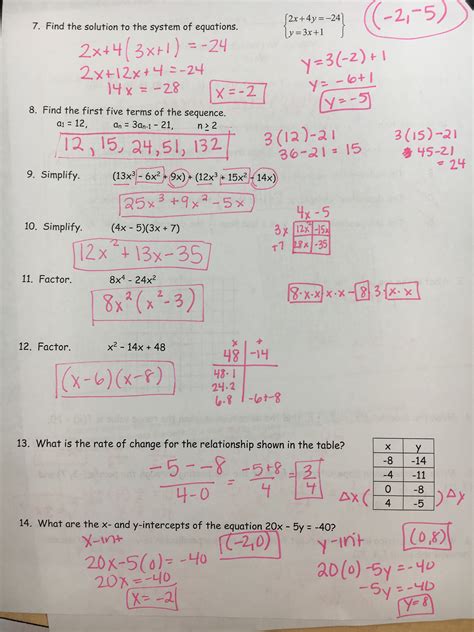 7. Find the solution to the system of equations. {2x + 4y = -24
y = 3x + 1
(-2,-5)
2x+4(3x+1) = -24
2x+12x+4 = -24
14x = -28
x=-2
y=3(-2)+1
y= -6+1
y=-5
8. Find the first five terms of the sequence.
a₁ = 12, aₙ = 3aₙ₋₁ – 21, n ≥ 2
12, 15, 24, 51, 132
3(12)-21
36-21 = 15
3(15)-21
45-21
= 24
9. Simplify. (13x³ – 6x² + 9x) + (12x³ + 15x² – 14x)
25x³ + 9x² - 5x
10. Simplify. (4x – 5)(3x + 7)
12x² + 13x - 35
4x -5
3x 12x² -15x
+7 28x -35
11. Factor. 8x⁴ – 24x²
8x²(x²-3)
8·x·x x·x - 8 3·x·x
12. Factor. x² – 14x + 48
(x-6)(x-8)
x +
48 -14
48·1
24·2
6·8 -6+-8
13. What is the rate of change for the relationship shown in the table?
-5 - -8 = -5+8 = 3
4-0 4 4
x y
-8 -14
-4 -11
0 -8
4 -5
Δx Δy
14. What are the x- and y-intercepts of the equation 20x – 5y = -40?
x-int (-2,0)
20x-5(0) = -40
20x = -40
x= -2
y-int (0,8)
20(0)-5y = -40
-5y = -40
y=8